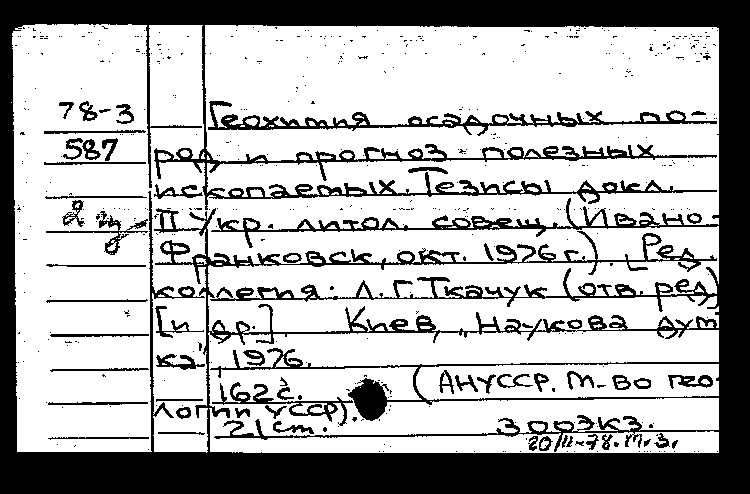 78-3
587
Геохимия осадочных по-
род и прогноз полезных
ископаемых. Тезисы докл.
II Укр. литол. совещ. (Ивано-
Франковск, окт. 1976 г.). [Ред.
коллегия: Л.Г. Ткачук (отв. ред)
[и др.]. Киев, „Наукова дум
ка", 1976.
162 с. (АН УССР. М-во гео-
логии УССР).
21 cm. 300 экз.